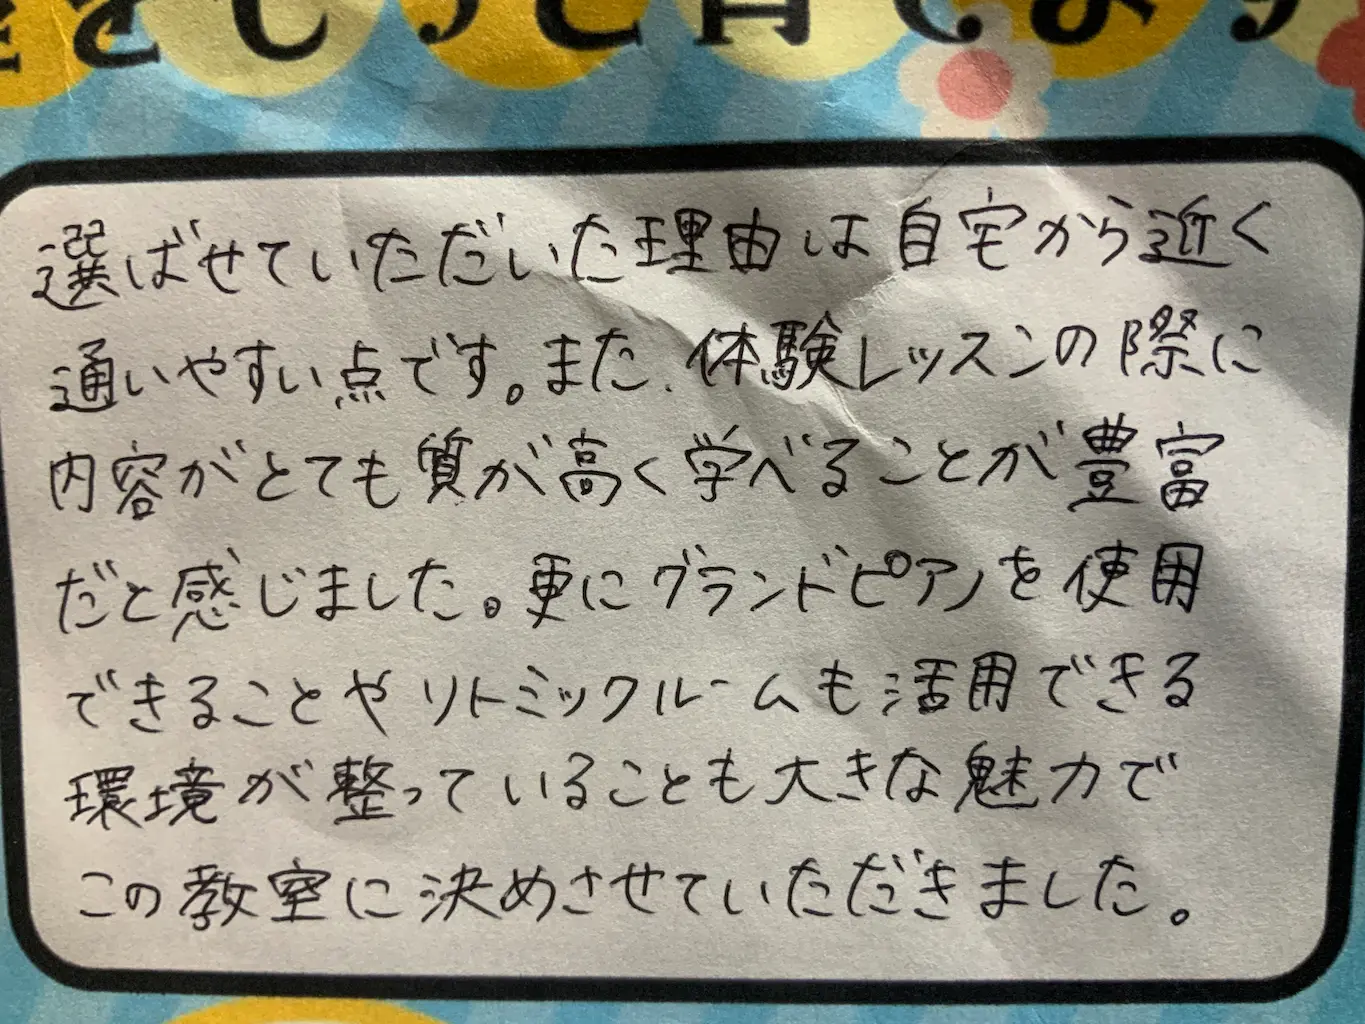 をしっと育てます
選ばせていただいた理由は自宅から近く
通いやすい点です。また、体験レッスンの際に
内容がとても質が高く学べることが豊富
だと感じました。更にグランドピアノを使用
できることやリトミックルームも活用できる
環境が整っていることも大きな魅力で
この教室に決めさせていただきました。